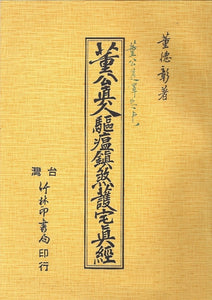 董德彰著
董公真人驅瘟鎮煞護宅真經
台灣
竹林印書局印行